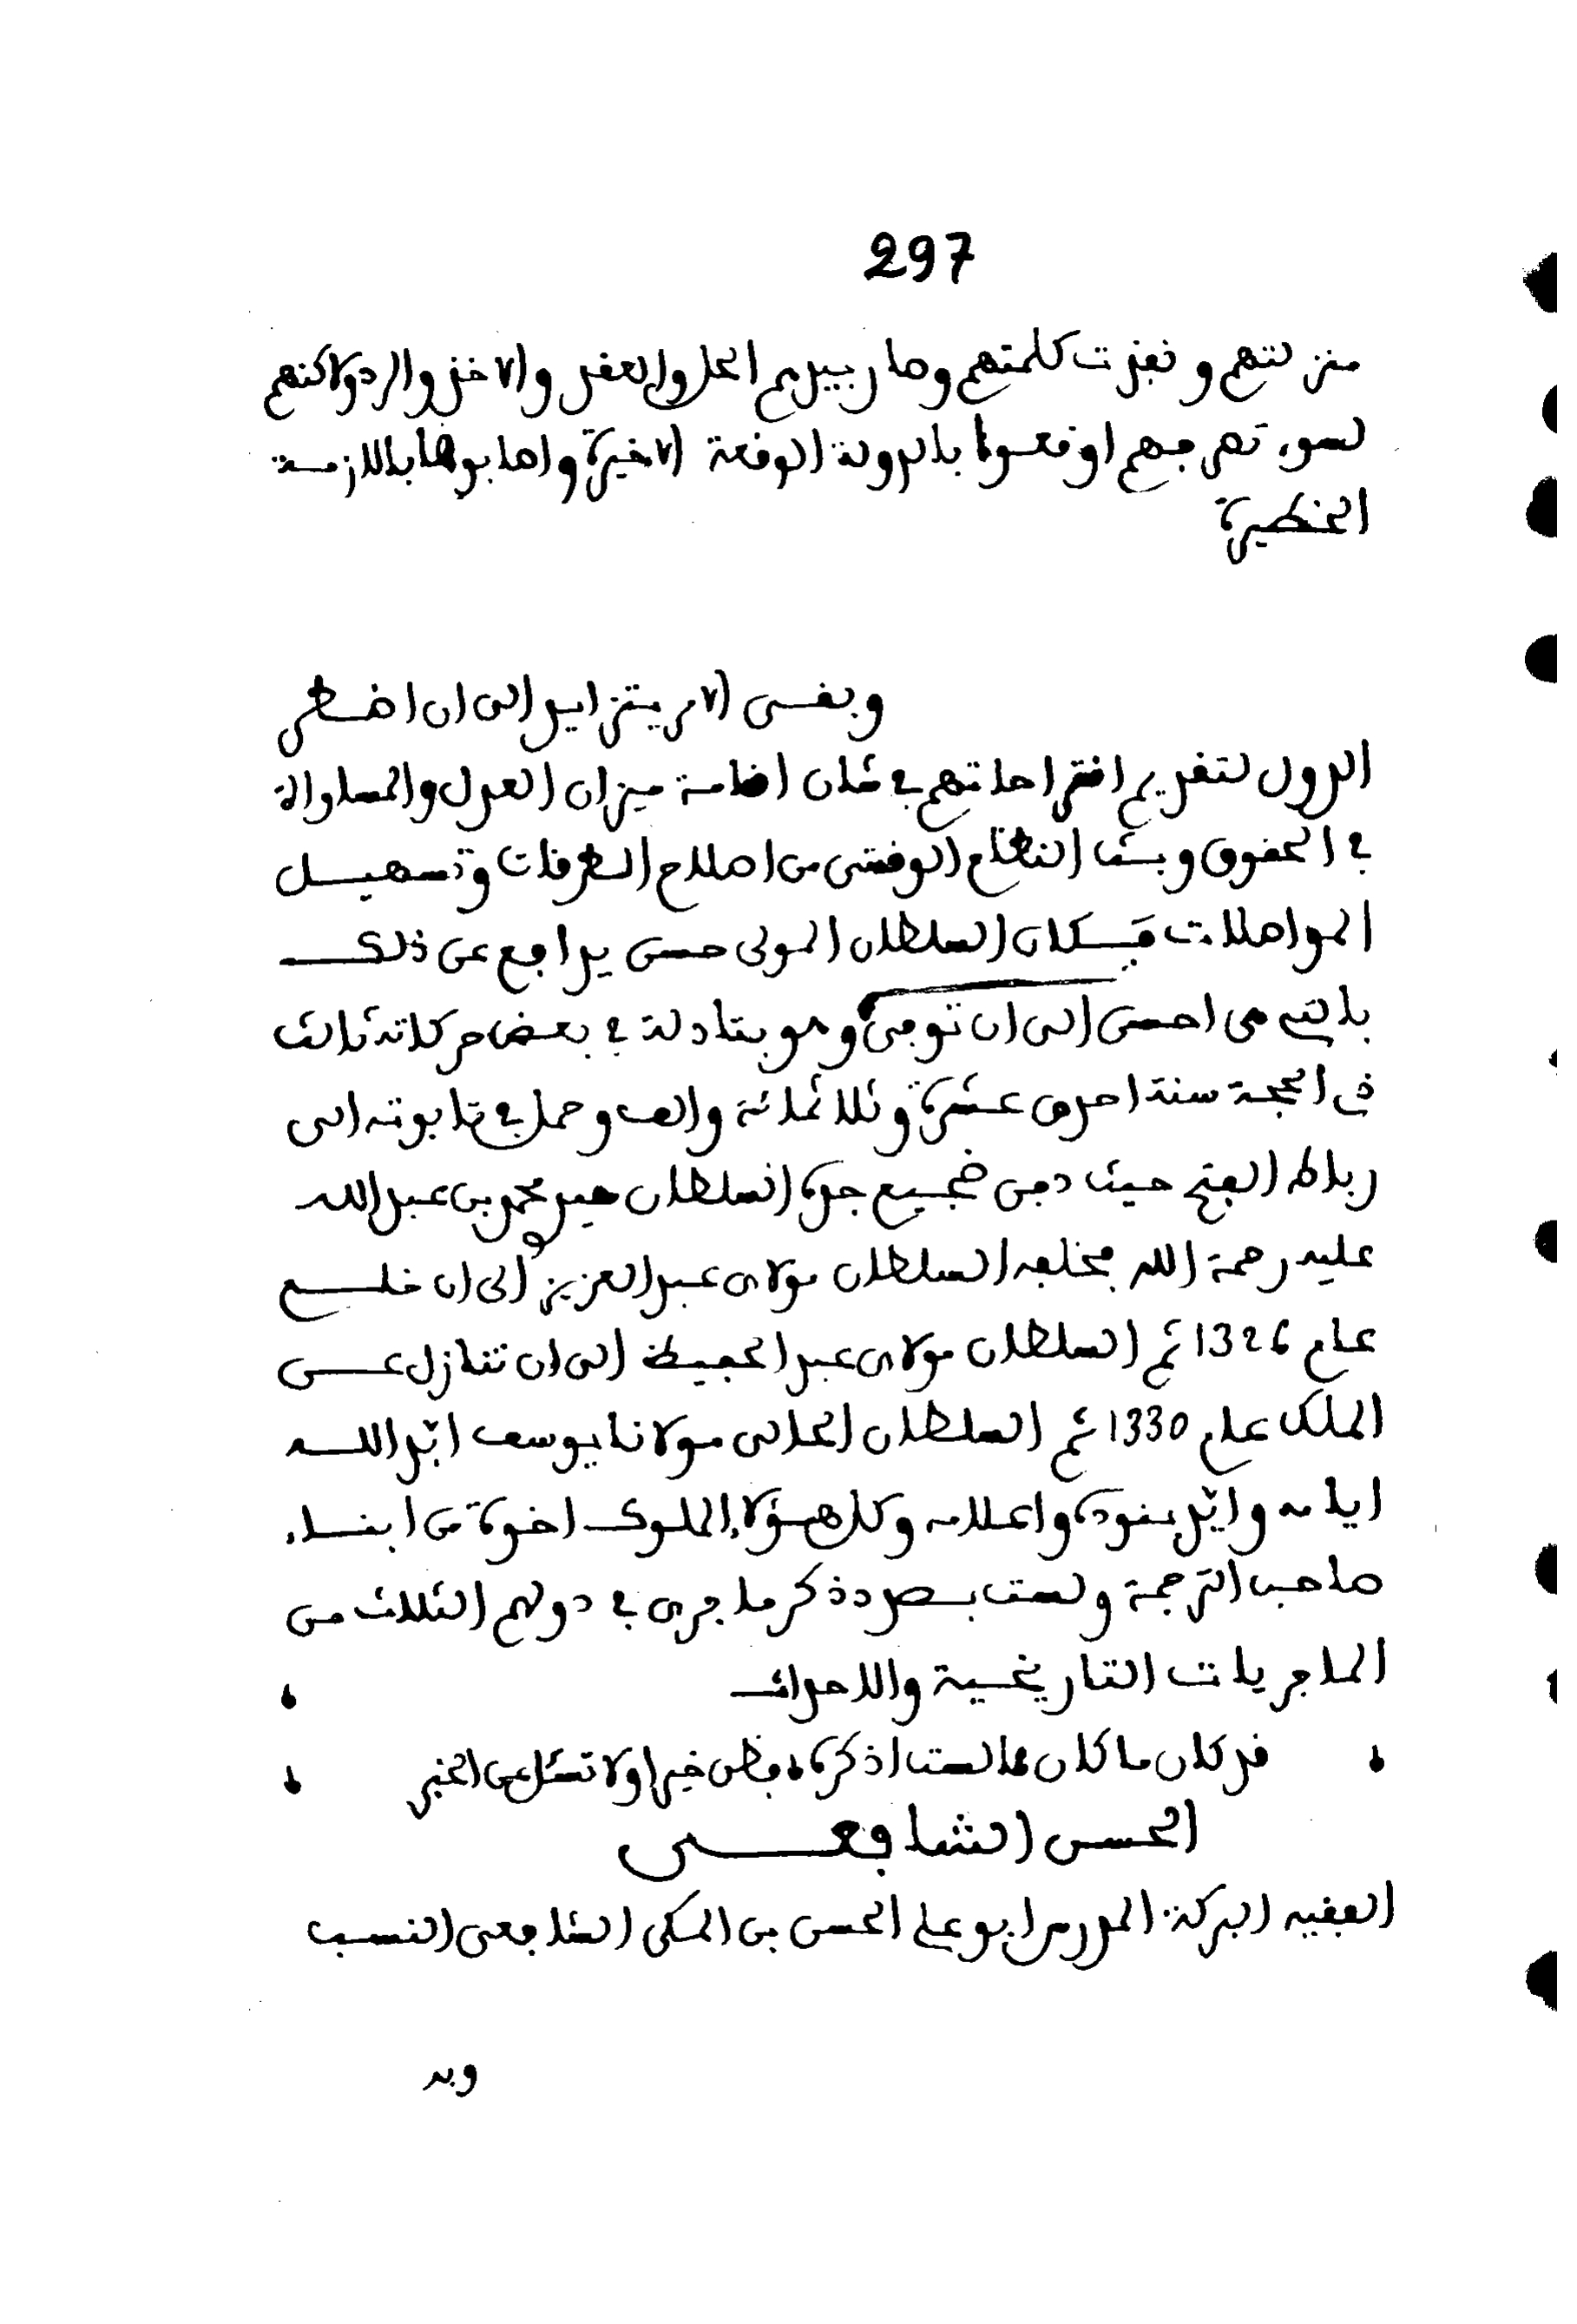 297
منزلتهم ونفذت كلمتهم وصار بيدهم الحل والعقد والاخذ والرد ولاكنهم
لسوء تصرفهم اوقعوا بالدولة الوقعة الاخيرة واصابوها باللازمة
الخطيرة
وبقى الامر يتزايد الى ان اضطر
الدول لتقديم اقتراحاتهم فى شان اقامة ميزان العدل والمساواة
فى الحقوق وبث النظام الوقتى من اصلاح الطرقات وتسهيل
المواصلات فكان السلطان المولى حسن يدافع عن ذلك
بالتى هى احسن الى ان توفى وهو بتادلة فى بعض حركاته ثالث
ذى الحجة سنة احدى عشرة وثلاثمائة والف وحمل فى تابوته الى
رباط الفتح حيث دفن ضجيع جده السلطان سيد محمد بن عبد الله
عليه رحمة الله فخلفه السلطان مولاى عبد العزيز الى ان خلع
عام 1326 ثم السلطان مولاى عبد الحفيظ الى ان تنازل عن
الملك عام 1330 ثم السلطان الحالى مولانا يوسف ابد الله
ايامه وايد بنوده واعلامه وكل هؤلاء الملوك اخوة من ابناء
صاحب الترجمة ولست بصدد ذكر ما جرى فى دولهم الثلاث من
الماجريات التاريخية والاحداث
قد كان ما كان مما لست اذكره فظن خيرا ولا تسئل عن الخبر
الحسن الشافعى
الفقيه البركة المدرس ابو على الحسن بن المكى الشافعى النسب
وبه